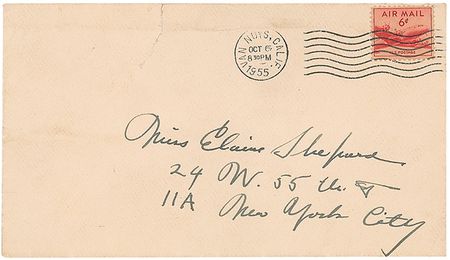 VAN NUYS, CALIF.
OCT 6
8 30 PM
1955
AIR MAIL
6¢
U.S. POSTAGE
Miss Elaine Shepard
24 W. 55 th. St
11A New York City